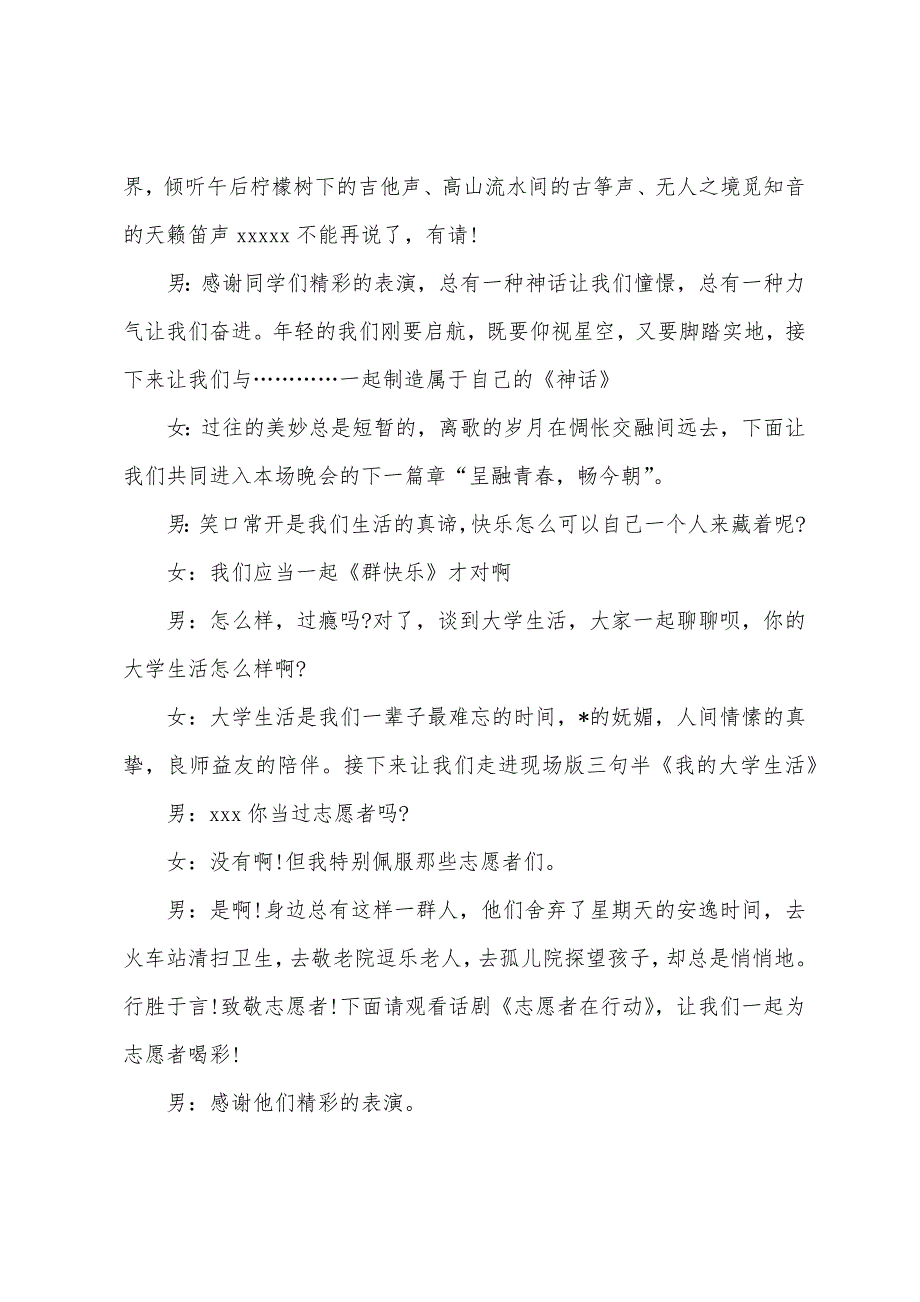 界，倾听午后柠檬树下的吉他声、高山流水间的古筝声、无人之境觅知音
的天籁笛声 xxxxx 不能再说了，有请!
男：感谢同学们精彩的表演，总有一种神话让我们憧憬，总有一种力
气让我们奋进。年轻的我们刚要启航，既要仰视星空，又要脚踏实地，接
下来让我们与…………一起制造属于自己的《神话》
女：过往的美妙总是短暂的，离歌的岁月在惆怅交融间远去，下面让
我们共同进入本场晚会的下一篇章“呈融青春，畅今朝”。
男：笑口常开是我们生活的真谛，快乐怎么可以自己一个人来藏着呢?
女：我们应当一起《群快乐》才对啊
男：怎么样，过瘾吗?对了，谈到大学生活，大家一起聊聊呗，你的
大学生活怎么样啊?
女：大学生活是我们一辈子最难忘的时间，*的妩媚，人间情愫的真
挚，良师益友的陪伴。接下来让我们走进现场版三句半《我的大学生活》
男：xxx 你当过志愿者吗?
女：没有啊!但我特别佩服那些志愿者们。
男：是啊!身边总有这样一群人，他们舍弃了星期天的安逸时间，去
火车站清扫卫生，去敬老院逗乐老人，去孤儿院探望孩子，却总是悄悄地。
行胜于言!致敬志愿者!下面请观看话剧《志愿者在行动》，让我们一起为
志愿者喝彩!
男：感谢他们精彩的表演。